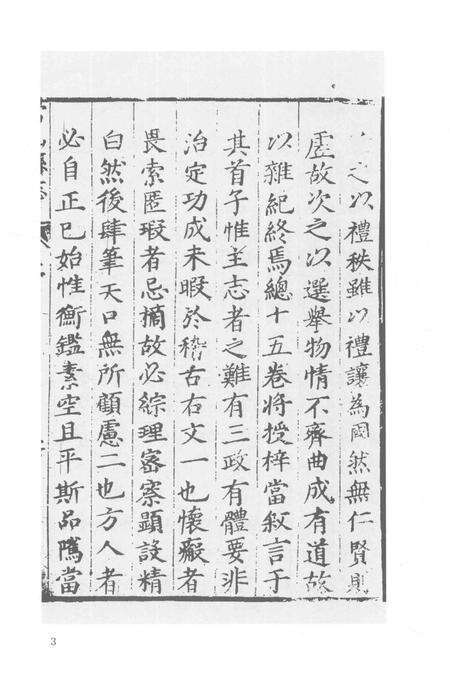 之以禮秩雖以禮讓為國然無仁賢則
虛故次之以選舉物情不齊曲成有道故
以雜紀終焉總十五卷將授梓當叙言于
其首子惟主志者之難有三政有體要非
治定功成未暇於稽古右文一也懷瘢者
畏索匿瑕者忌摘故必綜理密察顯設精
白然後肆筆天口無所顧慮二也方人者
必自正已始惟衡鑑素空且平斯品隲當
縣志
3